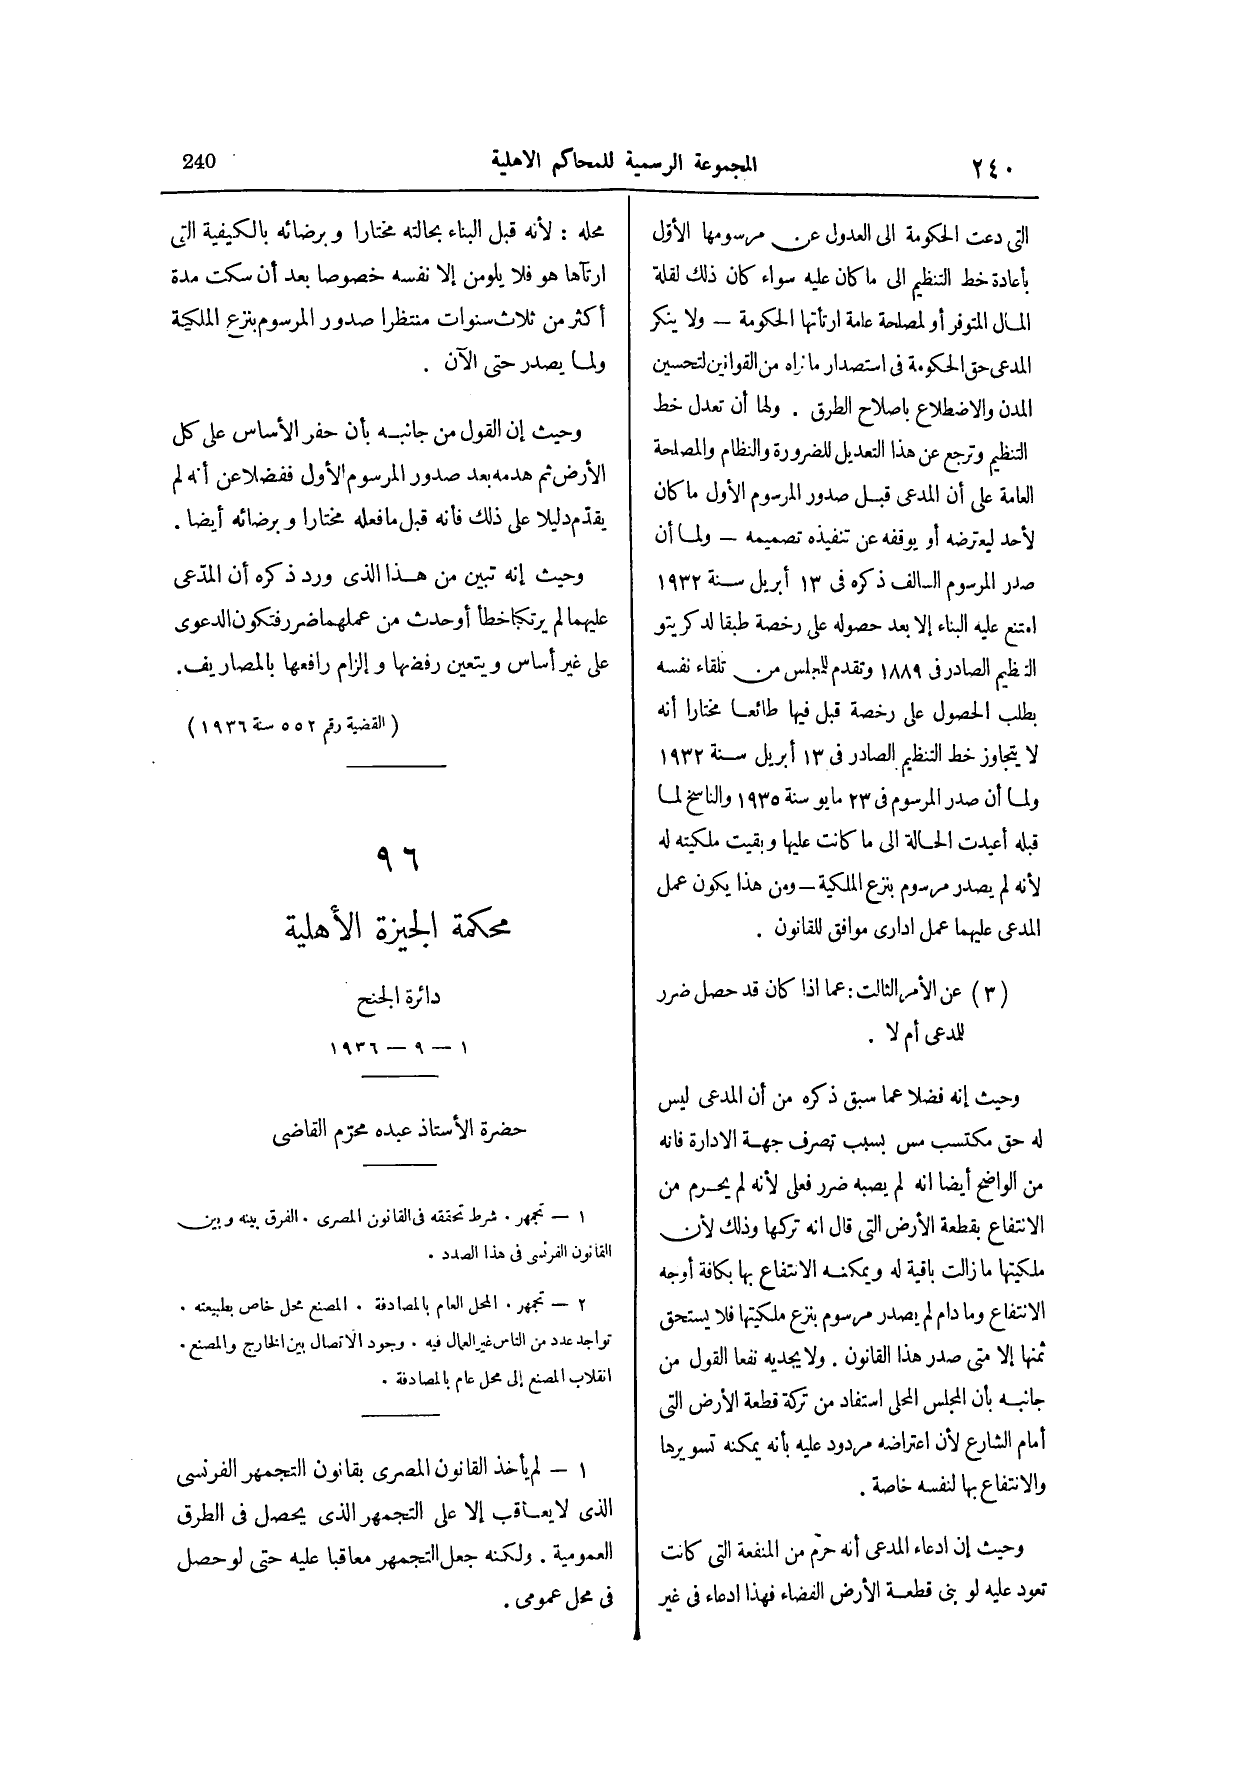 ٢٤٠
المجموعة الرسمية للمحاكم الاهلية
240
التى دعت الحكومة الى العدول عن مرسومها الأوّل
بأعادة خط التنظيم الى ما كان عليه سواء كان ذلك لقلة
المال المتوفر أو لمصلحة عامة ارتأتها الحكومة – ولا ينكر
المدعى حق الحكومة فى استصدار ما تراه من القوانين لتحسين
المدن والاضطلاع باصلاح الطرق . ولها أن تعدل خط
التنظيم وترجع عن هذا التعديل للضرورة والنظام والمصلحة
العامة على أن المدعى قبل صدور المرسوم الأول ما كان
لأحد ليعترضه أو يوقفه عن تنفيذه تصميمه – ولما أن
صدر المرسوم السالف ذكره فى ١٣ أبريل سنة ١٩٣٢
امتنع عليه البناء إلا بعد حصوله على رخصة طبقا لدكريتو
التنظيم الصادر فى ١٨٨٩ وتقدم للمجلس من تلقاء نفسه
بطلب الحصول على رخصة قبل فيها طائعا مختارا أنه
لا يتجاوز خط التنظيم الصادر فى ١٣ أبريل سنة ١٩٣٢
ولما أن صدر المرسوم فى ٢٣ مايو سنة ١٩٣٥ والناسخ لما
قبله أعيدت الحالة الى ما كانت عليها وبقيت ملكيته له
لأنه لم يصدر مرسوم بنزع الملكية – ومن هذا يكون عمل
المدعى عليهما عمل ادارى موافق للقانون .
(٣) عن الأمر الثالث : عما اذا كان قد حصل ضرر
للمدعى أم لا .
وحيث إنه فضلا عما سبق ذكره من أن المدعى ليس
له حق مكتسب مس بسبب تصرف جهة الادارة فانه
من الواضح أيضا انه لم يصبه ضرر فعلى لأنه لم يحرم من
الانتفاع بقطعة الأرض التى قال انه تركها وذلك لأن
ملكيتها ما زالت باقية له ويمكنه الانتفاع بها بكافة أوجه
الانتفاع وما دام لم يصدر مرسوم بنزع ملكيتها فلا يستحق
ثمنها إلا متى صدر هذا القانون . ولا يجديه نفعا القول من
جانبه بأن المجلس المحلى استفاد من تركة قطعة الأرض التى
أمام الشارع لأن اعتراضه مردود عليه بأنه يمكنه تسويرها
والانتفاع بها لنفسه خاصة .
وحيث إن ادعاء المدعى أنه حرّم من المنفعة التى كانت
تعود عليه لو بنى قطعة الأرض الفضاء فهذا ادعاء فى غير
محله : لأنه قبل البناء بحالته مختارا وبرضائه بالكيفية التى
ارتآها هو فلا يلومن إلا نفسه خصوصا بعد أن سكت مدة
أكثر من ثلاث سنوات منتظرا صدور المرسوم بنزع الملكية
ولما يصدر حتى الآن .
وحيث إن القول من جانبه بأن حفر الأساس على كل
الأرض ثم هدمه بعد صدور المرسوم الأول ففضلا عن أنه لم
يقدّم دليلا على ذلك فأنه قبل ما فعله مختارا وبرضائه أيضا .
وحيث إنه تبين من هذا الذى ورد ذكره أن المدّعى
عليهما لم يرتكبا خطأ أو حدث من عملهما ضرر فتكون الدعوى
على غير أساس ويتعين رفضها و إلزام رافعها بالمصاريف.
( القضية رقم ٥٥٢ سنة ١٩٣٦ )
٩٦
محكمة الجيزة الأهلية
دائرة الجنح
١ – ٩ – ١٩٣٦
حضرة الأستاذ عبده محرّم القاضى
١ – تجمهر . شرط تحققه فى القانون المصرى . الفرق بينه وبين
القانون الفرنسى فى هذا الصدد .
٢ – تجمهر . المحل العام بالمصادفة . المصنع محل خاص بطبيعته .
تواجد عدد من الناس غير العمال فيه . وجود الاتصال بين الخارج والمصنع .
انقلاب المصنع إلى محل عام بالمصادفة .
١ – لم يأخذ القانون المصرى بقانون التجمهر الفرنسى
الذى لا يعاقب إلا على التجمهر الذى يحصل فى الطرق
العمومية . ولكنه جعل التجمهر معاقبا عليه حتى لو حصل
فى محل عمومى .